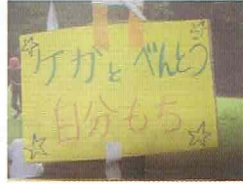 ケガと べんとう
自分もち